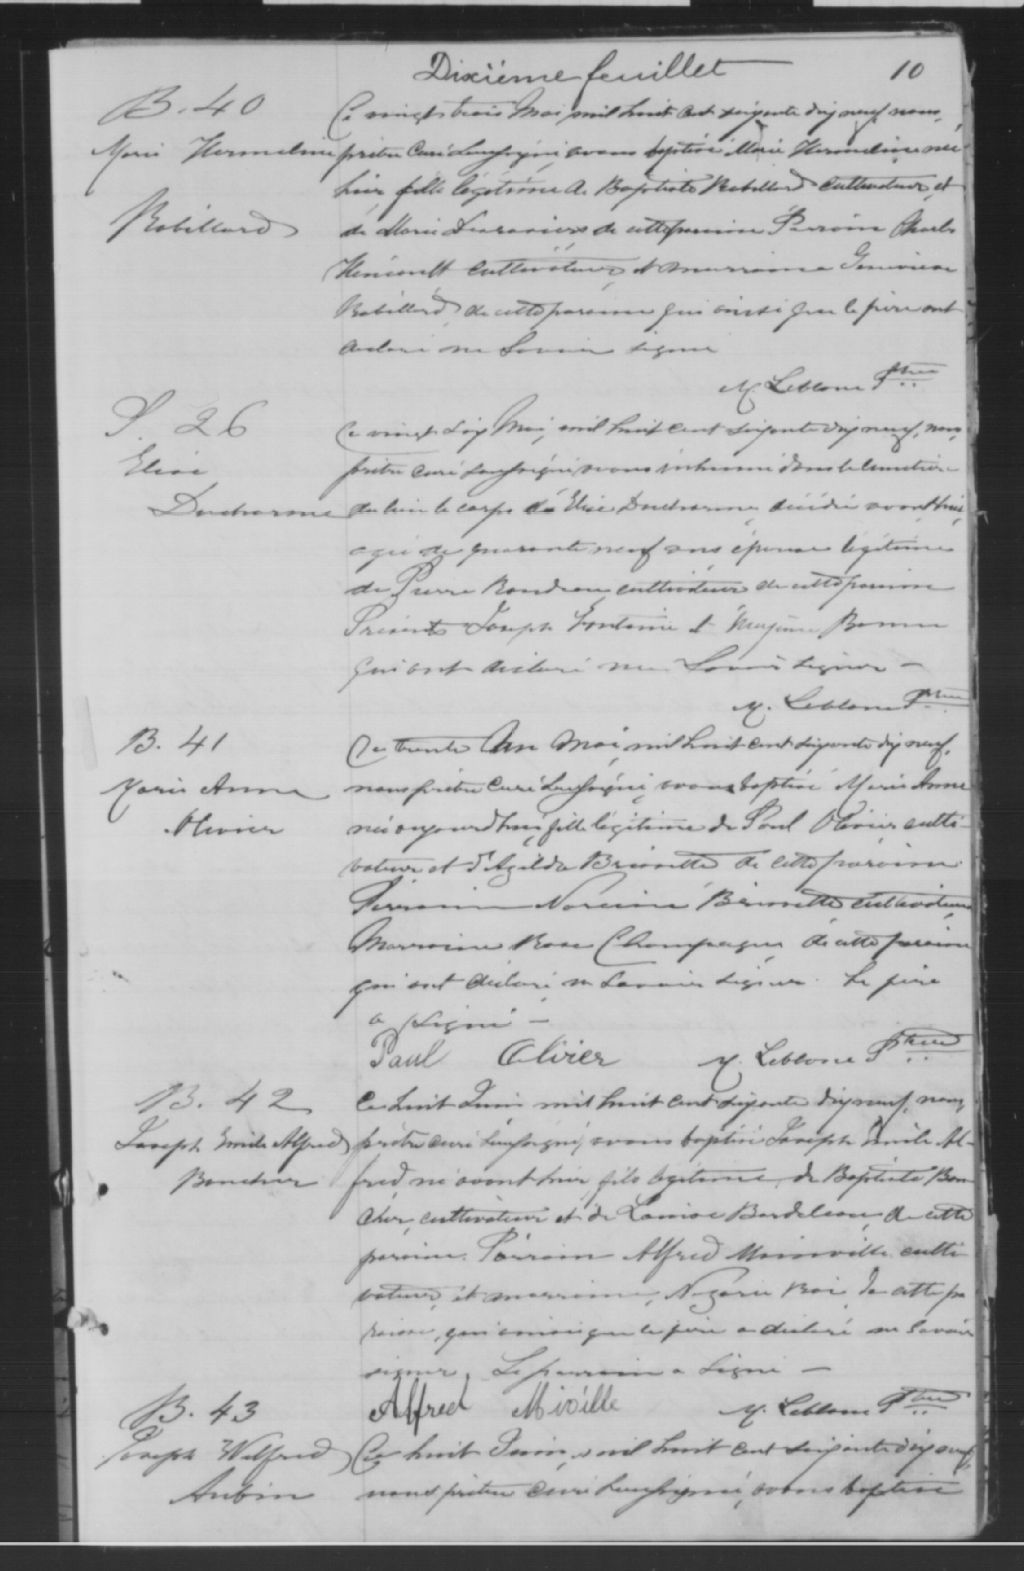 Dixième feuillet 10
B. 40
Marie Hermeline
Robillard
Ce vingt trois Mai mil huit cent soixante dix neuf, nous,
prêtre curé soussigné avons baptisé Marie Hermeline née
hier fille légitime de Baptiste Robillard cultivateur et
de Marie de cette paroisse Parrain Charles
Henault cultivateur, et marraine Genevieve
Robillard, de cette paroisse qui ainsi que le père ont
déclaré ne savoir signer
M. Leblanc Ptre
S. 26
Elise
Ducharme
Ce vingt six Mai, mil huit cent soixante dix neuf, nous,
prêtre curé soussigné avons inhumé dans le cimetière
du lieu le corps de Elise Ducharme, décédée avant hier
agée de quarante neuf ans épouse légitime
de Pierre Rondeau cultivateur de cette paroisse
Présents Joseph Fontaine et
qui ont déclaré ne savoir signer —
M. Leblanc Ptre
B. 41
Marie Anne
Olivier
Ce trente un Mai, mil huit cent soixante dix neuf,
nous prêtre curé soussigné, avons baptisé Marie Anne
née aujourd'hui, fille légitime de Paul Olivier culti-
vateur et d'Azilda Brissette de cette paroisse.
Parrain Narcisse Brissette cultivateur
Marraine Rose Champagne de cette paroisse
qui ont déclaré ne savoir signer. Le père
a signé —
Paul Olivier M. Leblanc Ptre
B. 42
Joseph Emile Alfred
Boucher
Ce huit Juin mil huit cent soixante dix neuf, nous,
prêtre curé soussigné, avons baptisé Joseph Emile Al-
fred né avant hier, fils légitime de Baptiste Bou-
cher, cultivateur et de Louise Bordeleau de cette
paroisse. Parrain Alfred Mainville culti-
vateur, et marraine, Nazarie Roi, de cette pa-
roisse, qui ainsi que le père a déclaré ne savoir
signer. Le parrain a signé —
Alfred Miville M. Leblanc Ptre
B. 43
Joseph Wilfred
Aubin
Ce huit Juin, mil huit cent soixante dix neuf,
nous prêtre curé soussigné, avons baptisé